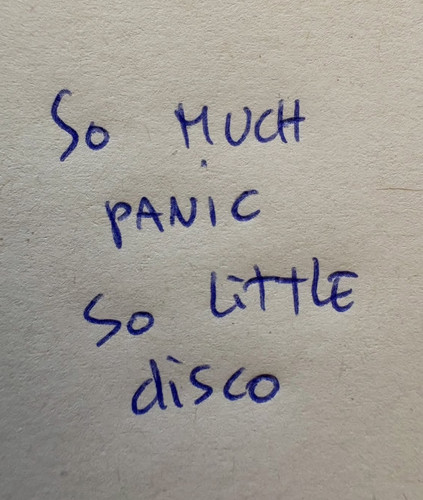 So MUCH
PANIC
So LiTTLE
disco